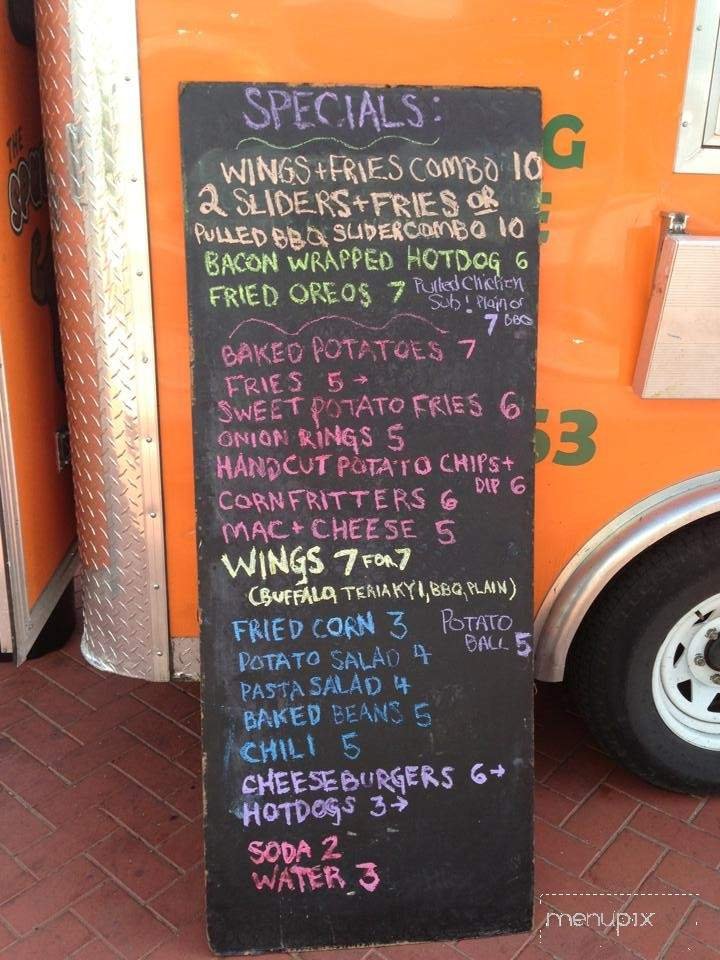 SPECIALS:
WINGS+FRIES COMBO 10
2 SLIDERS+FRIES OR
PULLED BBQ SLIDER COMBO 10
BACON WRAPPED HOTDOG 6
FRIED OREOS 7
Pulled Chicken
Sub! Plain or
7 BBQ
BAKED POTATOES 7
FRIES 5→
SWEET POTATO FRIES 6
ONION RINGS 5
HANDCUT POTATO CHIPS+
DIP 6
CORN FRITTERS 6
MAC+CHEESE 5
WINGS 7 FOR 7
(BUFFALO, TERIAKYI, BBQ, PLAIN)
FRIED CORN 3
POTATO
BALL 5
POTATO SALAD 4
PASTA SALAD 4
BAKED BEANS 5
CHILI 5
CHEESEBURGERS 6→
HOTDOGS 3→
SODA 2
WATER 3
THE
G
E
53
menupix